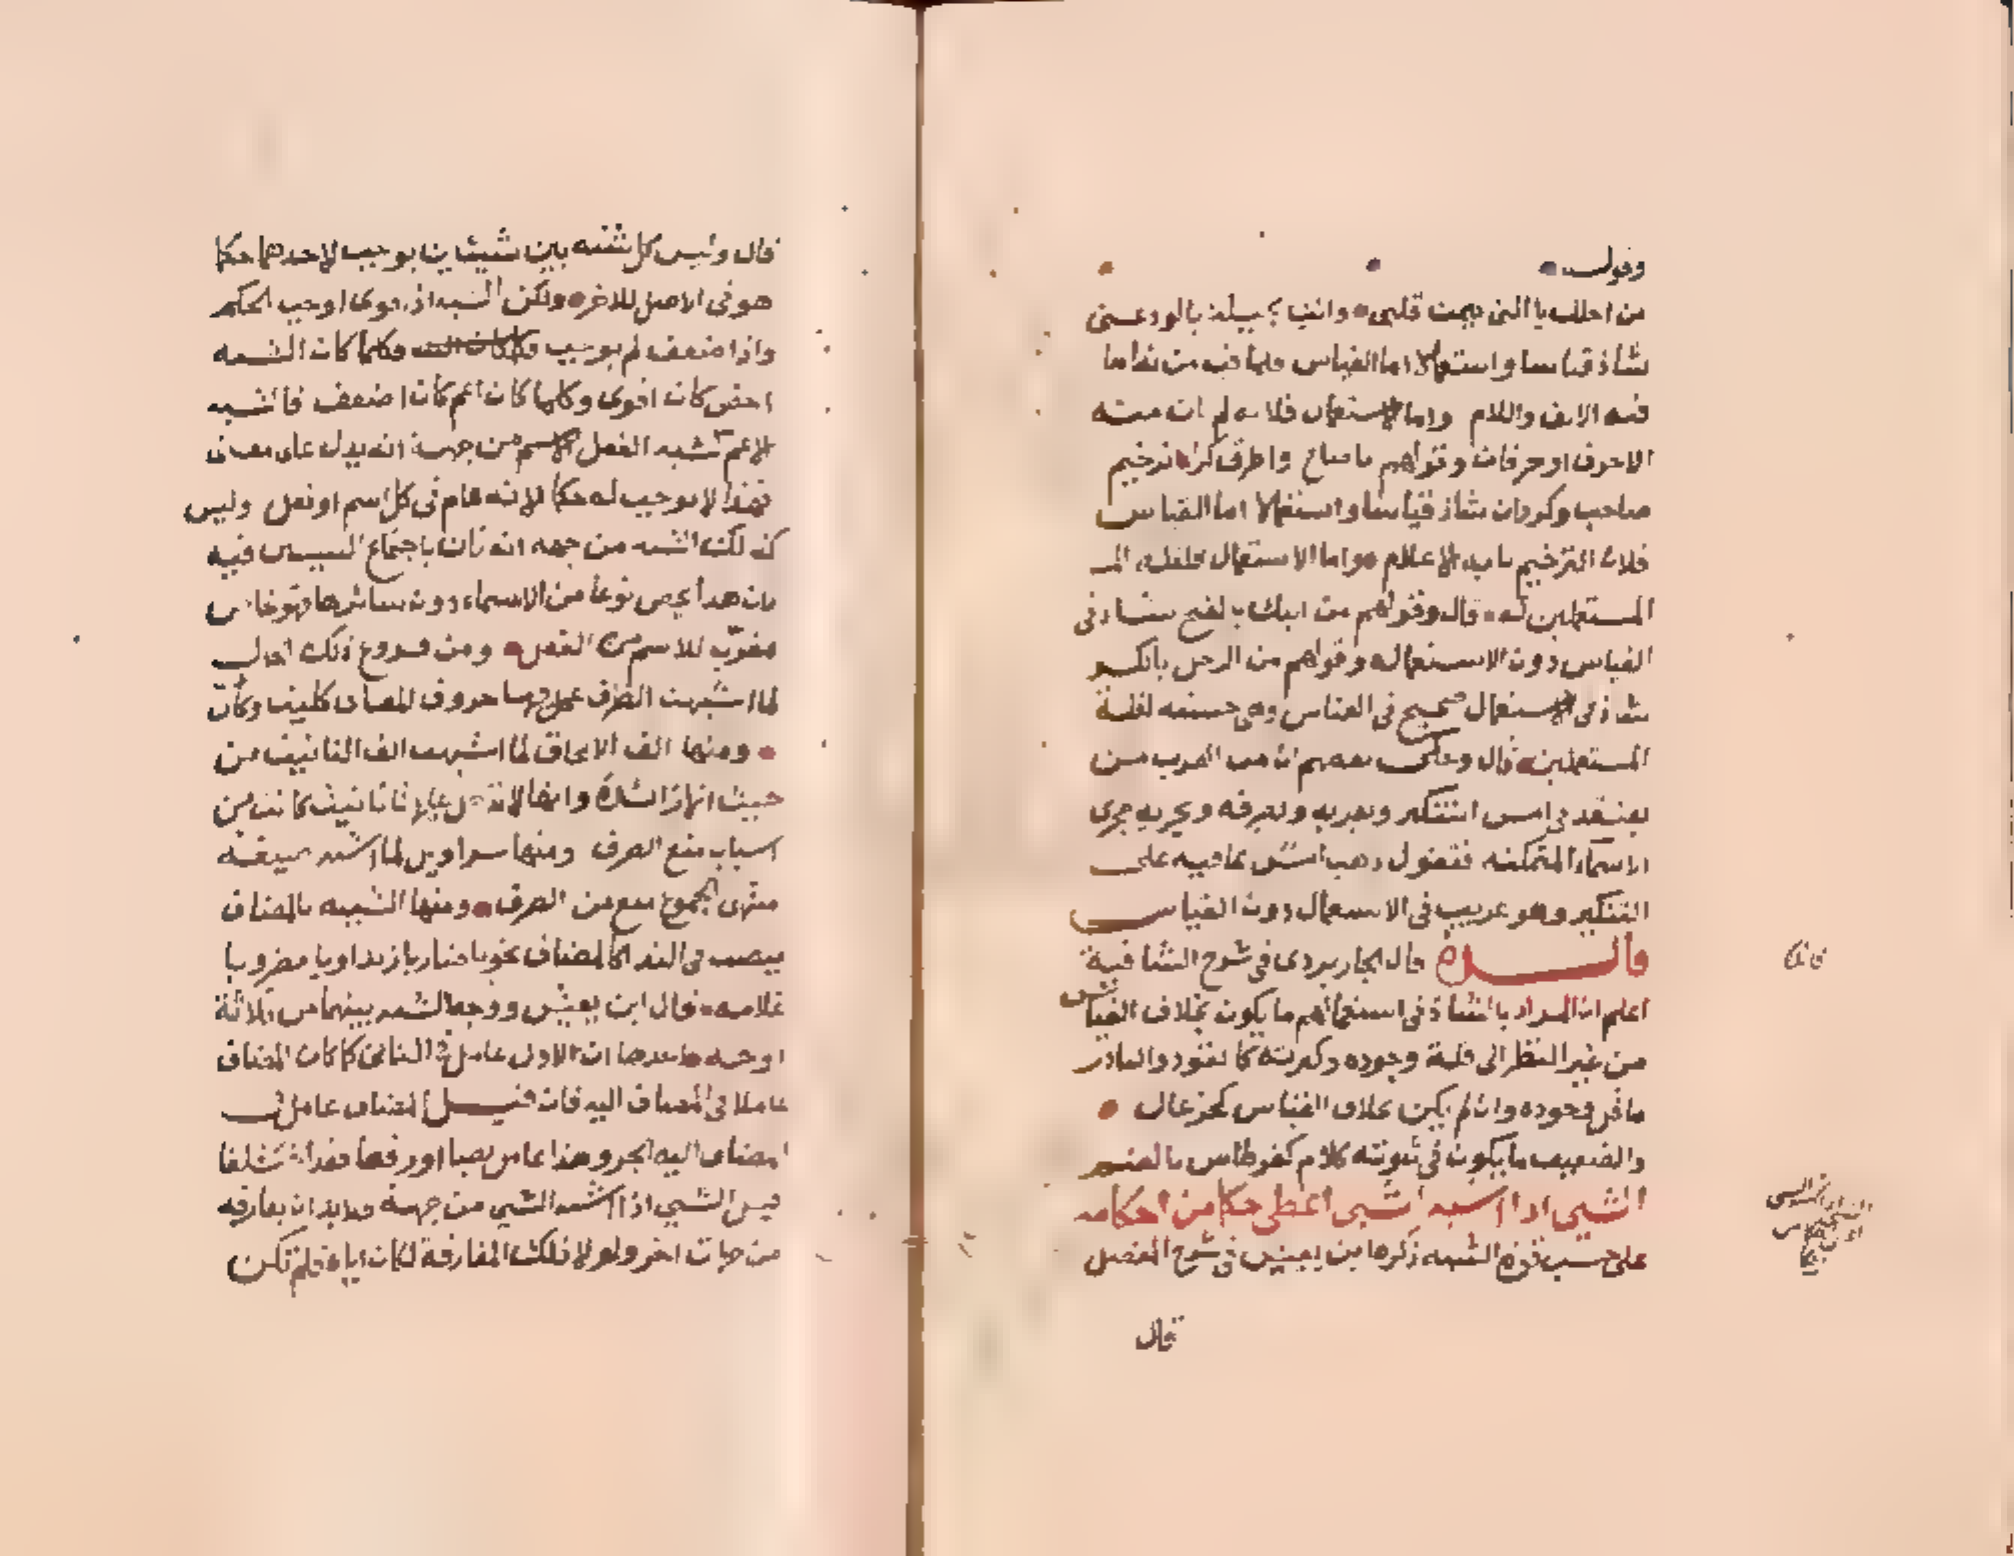 وقوله
من اجلك يا التي تيمت قلبي وانت بخيلة بالود عني
شاذ قياسا واستعمالا اما القياس فلما فيه من نداء ما
فيه الالف واللام واما الاستعمال فلانه لم ات منه
الا حرف او حرفان وقولهم يا صاح واطرق كرا ترخيم
صاحب وكروان شاذ قياسا واستعمالا اما القياس
فلان الترخيم بابه الاعلام واما الاستعمال فلقلة المـ
المستعملين له قال وقولهم من ابنك بالفتح شاذ في
القياس دون الاستعمال وقولهم من الرجل بالكسر
شاذ في الاستعمال صحيح في القياس وهي حسنة لقلة
المستعملين قال وحكى بعضهم ان من العرب من
يعتقد في امس التنكير ويعربه ويصرفه ويجريه مجرى
الاسماء المتمكنة فتقول ذهب امس بما فيه على
التنكير وهو غريب في الاستعمال دون القياس
فائدة قال الجاربردي في شرح الشافية
اعلم ان المراد بالشاذ في استعمالهم ما يكون بخلاف القياس
من غير النظر الى قلة وجوده وكثرته كالقود والنادر
ما قل وجوده وان لم يكن بخلاف القياس كخزعال
والضعيف ما يكون في ثبوته كلام كقرطاس بالضم
الشيء اذا اشبه الشيء اعطي حكما من احكامه
على حسب قوة الشبه ذكرها ابن يعيش في شرح المفصل
قال
فائدة
قال وليس كل شبه بين شيئين يوجب لاحدهما حكما
هو في الاصل للاخر ولكن الشبه اذا قوي اوجب الحكم
واذا ضعف لم يوجب فكلما كان الشبه فكلما كان الشبه
اخص كان اقوى وكلما كان اعم كان اضعف فالشبه
الاعم كشبه الفعل الاسم من جهة انه يدل على معنى
فهذا لا يوجب له حكما لانه عام في كل اسم وفعل وليس
كذلك الشبه من جهة انه ثان باجتماع السببين فيه
لان هذا يخص نوعا من الاسماء دون سائرها فهو خاص
مقرب للاسم من الفعل ومن فروع ذلك
لما اشبهت الظرف عمل فيها حروف المعاني كليت وكأن
ومنها الف الالحاق لما اشبهت الف التانيث من
حيث انها زائدة وانها لا تدخل عليها تا تانيث كانت من
اسباب منع الصرف ومنها سراويل لما اشبه صيغة
منتهى الجموع منع من الصرف ومنها الشبيه بالمضاف
ينصب في الندا كالمضاف نحو يا ضاربا زيدا ويا مضروبا
غلامه قال ابن يعيش ووجه الشبه بينهما من ثلاثة
اوجه احدها ان الاول عامل في الثاني كما كان المضاف
عاملا في المضاف اليه فان قيل المضاف عامل في
المضاف اليه الجر وهذا عامل نصبا او رفعا فقد اختلفا
قيل الشيء اذا اشبه الشيء من جهة فلا بد ان يفارقه
من جهات اخر ولولا تلك المفارقة لكان اياه فلم تكن